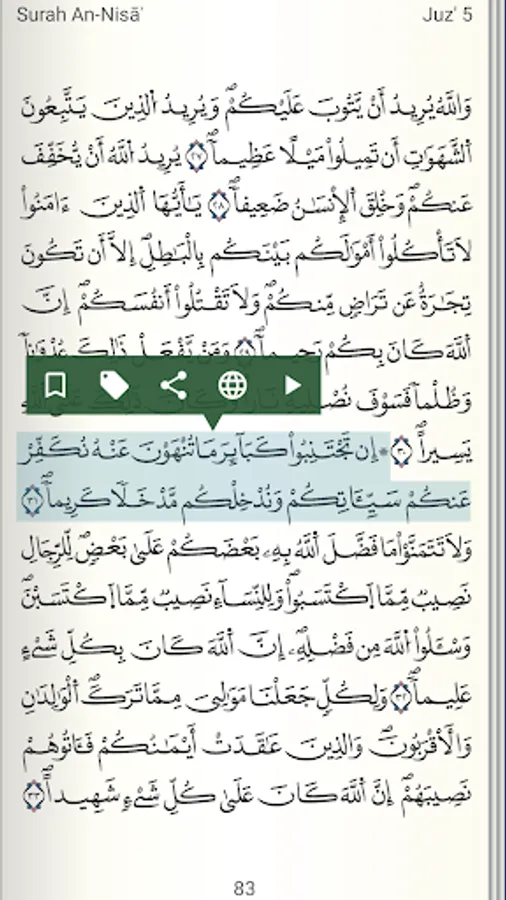 Surah An-Nisāʼ Juzʼ 5
وَاللَّهُ يُرِيدُ أَنْ يَّتُوبَ عَلَيْكُمْۖ وَيُرِيدُ الذِينَ يَتَّبِعُونَ
اَلشَّهَوَٰتِ أَن تَمِيلُواْ مَيْلًا عَظِيماٗۖ ٢٧ يُرِيدُ اللَّهُ أَنْ يُّخَفِّفَ
عَنكُمْۖ وَخُلِقَ اَلْإِنسَٰنُ ضَعِيفاٗۖ ٢٨ يَٰأَيُّهَا اَلذِينَ ءَامَنُواْ
لَا تَأْكُلُواْ أَمْوَٰلَكُم بَيْنَكُم بِالْبَٰطِلِ إِلَّا أَن تَكُونَ
تِجَٰرَةٌ عَن تَرَاضٖ مِّنكُمْۖ وَلَا تَقْتُلُواْ أَنفُسَكُمْۖ إِنَّ
اَللَّهَ كَانَ بِكُمْ رَحِيماٗۖ وَمَنْ يَّفْعَلْ ذَٰلِكَ عُدْوَٰناٗ
وَظُلْماٗ فَسَوْفَ نُصْلِيهِ
يَسِيراًۖ ٣٠ ۞ إِن تَجْتَنِبُواْ كَبَآئِرَ مَا تُنْهَوْنَ عَنْهُ نُكَفِّرْ
عَنكُمْ سَيِّـَٔاتِكُمْ وَنُدْخِلْكُم مَّدْخَلًا كَرِيماٗۖ ٣١
وَلَا تَتَمَنَّوْاْ مَا فَضَّلَ اَللَّهُ بِهِۦ بَعْضَكُمْ عَلَىٰ بَعْضٖۖ لِّلرِّجَالِ
نَصِيبٞ مِّمَّا اَكْتَسَبُواْۖ وَلِلنِّسَآءِ نَصِيبٞ مِّمَّا اَكْتَسَبْنَۖ
وَسْـَٔلُواْ اُللَّهَ مِن فَضْلِهِۦۖ إِنَّ اَللَّهَ كَانَ بِكُلِّ شَےْءٍ
عَلِيماٗۖ ٣٢ وَلِكُلّٖ جَعَلْنَا مَوَٰلِيَ مِمَّا تَرَكَ اَلْوَٰلِدَٰنِ
وَالْأَقْرَبُونَۖ وَالذِينَ عَٰقَدَتْ أَيْمَٰنُكُمْ فَـَٔاتُوهُمْ
نَصِيبَهُمْۖ إِنَّ اَللَّهَ كَانَ عَلَىٰ كُلِّ شَےْءٖ شَهِيداًۖ ٣٣
83